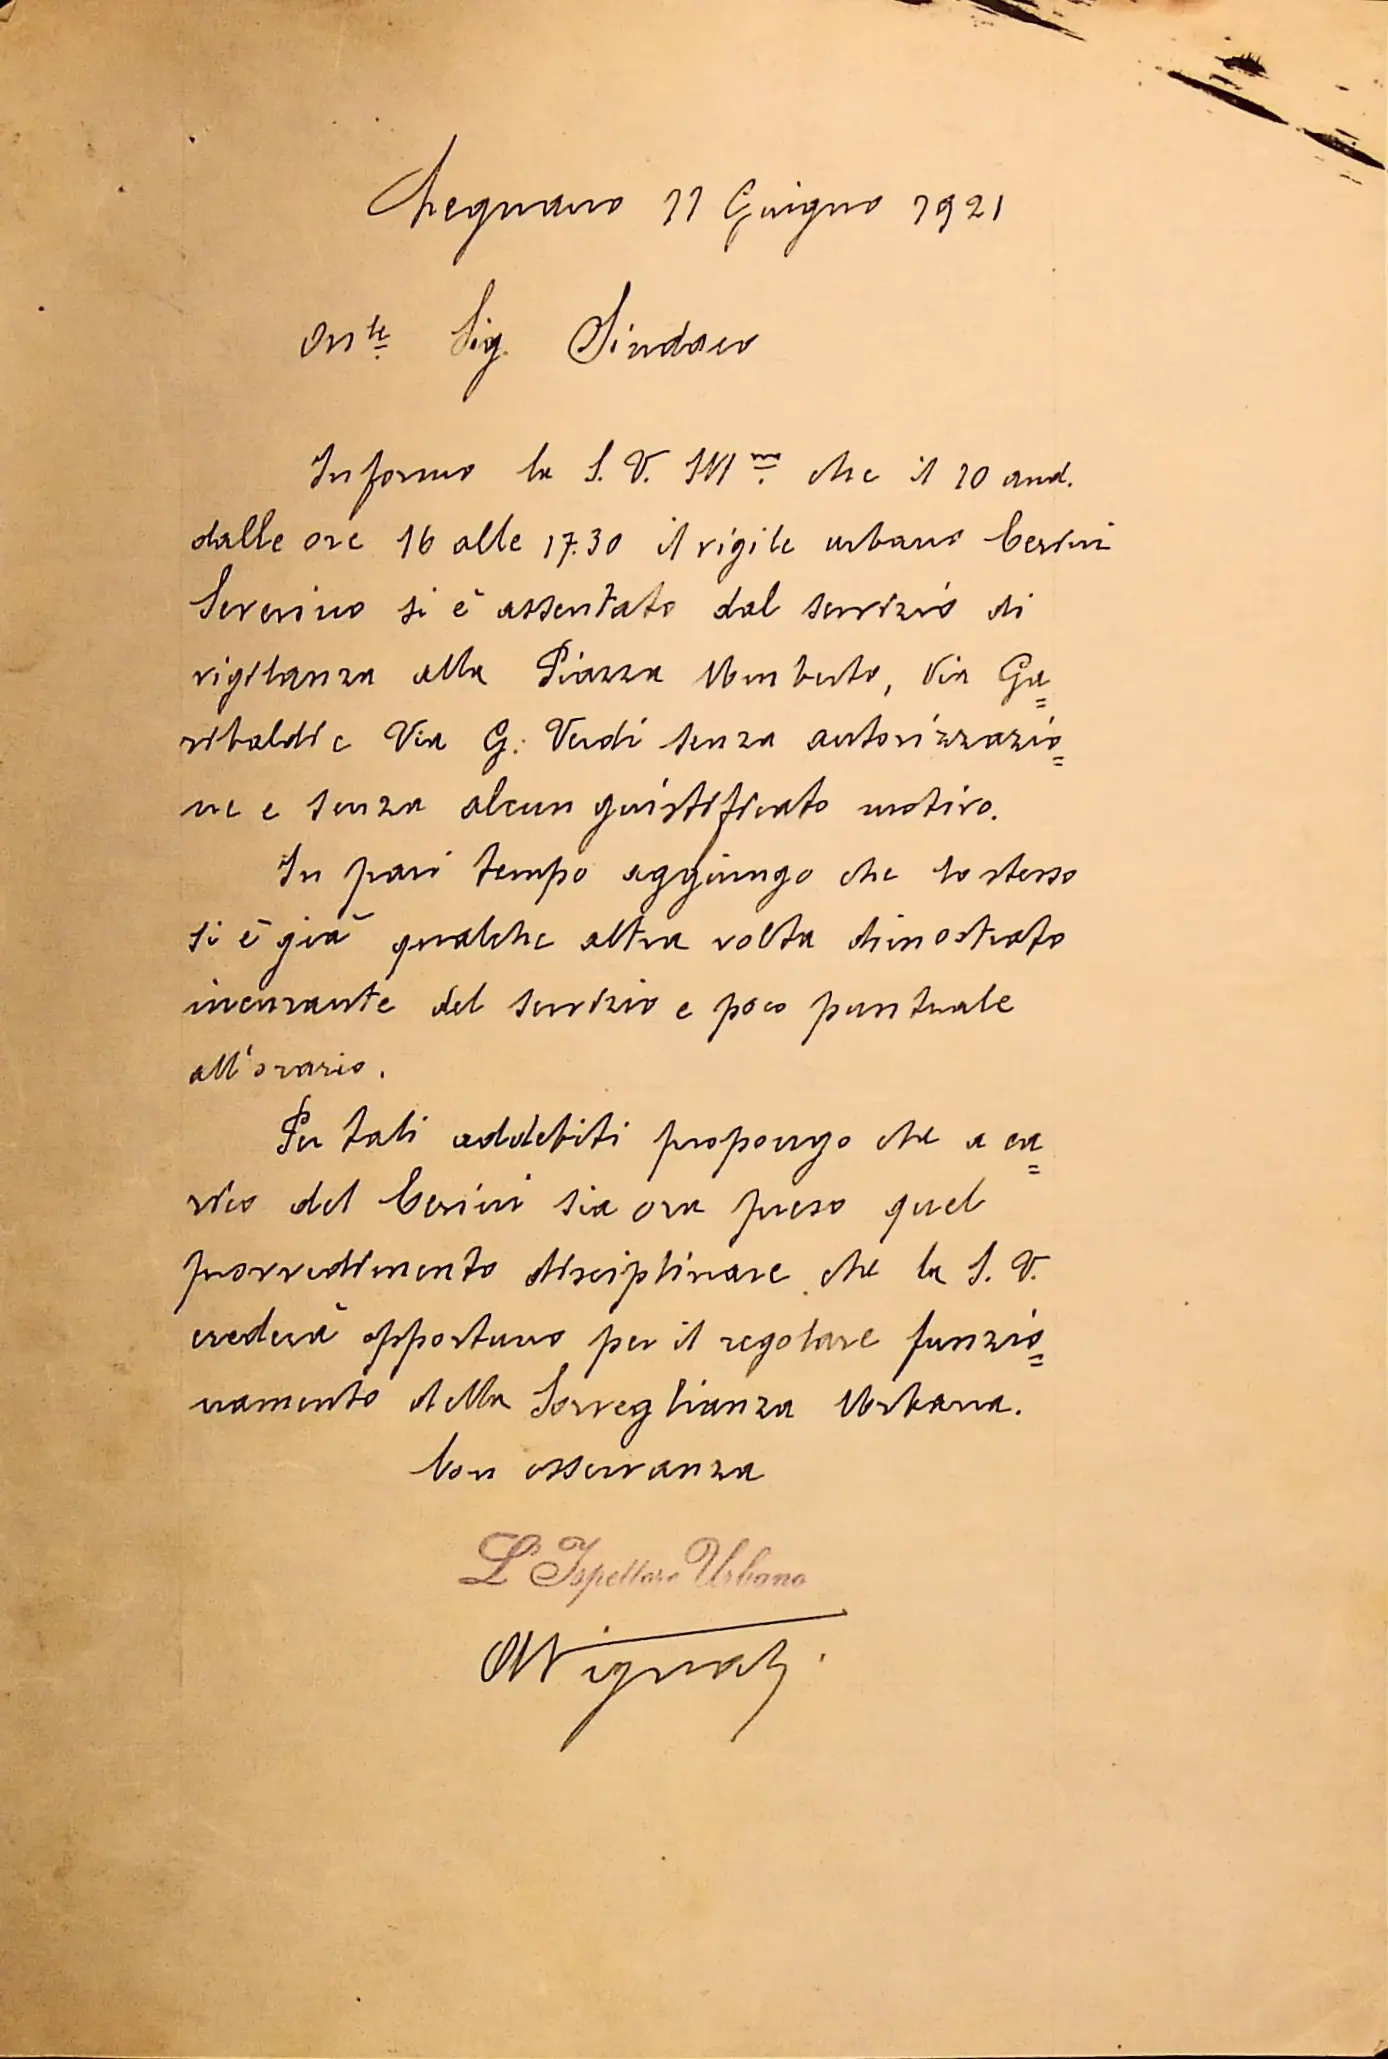 Legnano 11 Giugno 1921
On.te Sig. Sindaco
Informo la S. V. Ill.ma che il 10 and.
dalle ore 16 alle 17.30 il vigile urbano Cerini
Severino si è assentato dal servizio di
vigilanza alla Piazza Umberto, Via Ga=
ribaldi e Via G. Verdi senza autorizzazio=
ne e senza alcun giustificato motivo.
In pari tempo aggiungo che lo stesso
si è già qualche altra volta dimostrato
incurante del servizio e poco puntuale
all'orario.
Per tali addebiti propongo che a ca=
rico del Cerini sia ora preso quel
provvedimento disciplinare che la S. V.
crederà opportuno per il regolare funzio=
namento della Sorveglianza Urbana.
Con osservanza
L'Ispettore Urbano